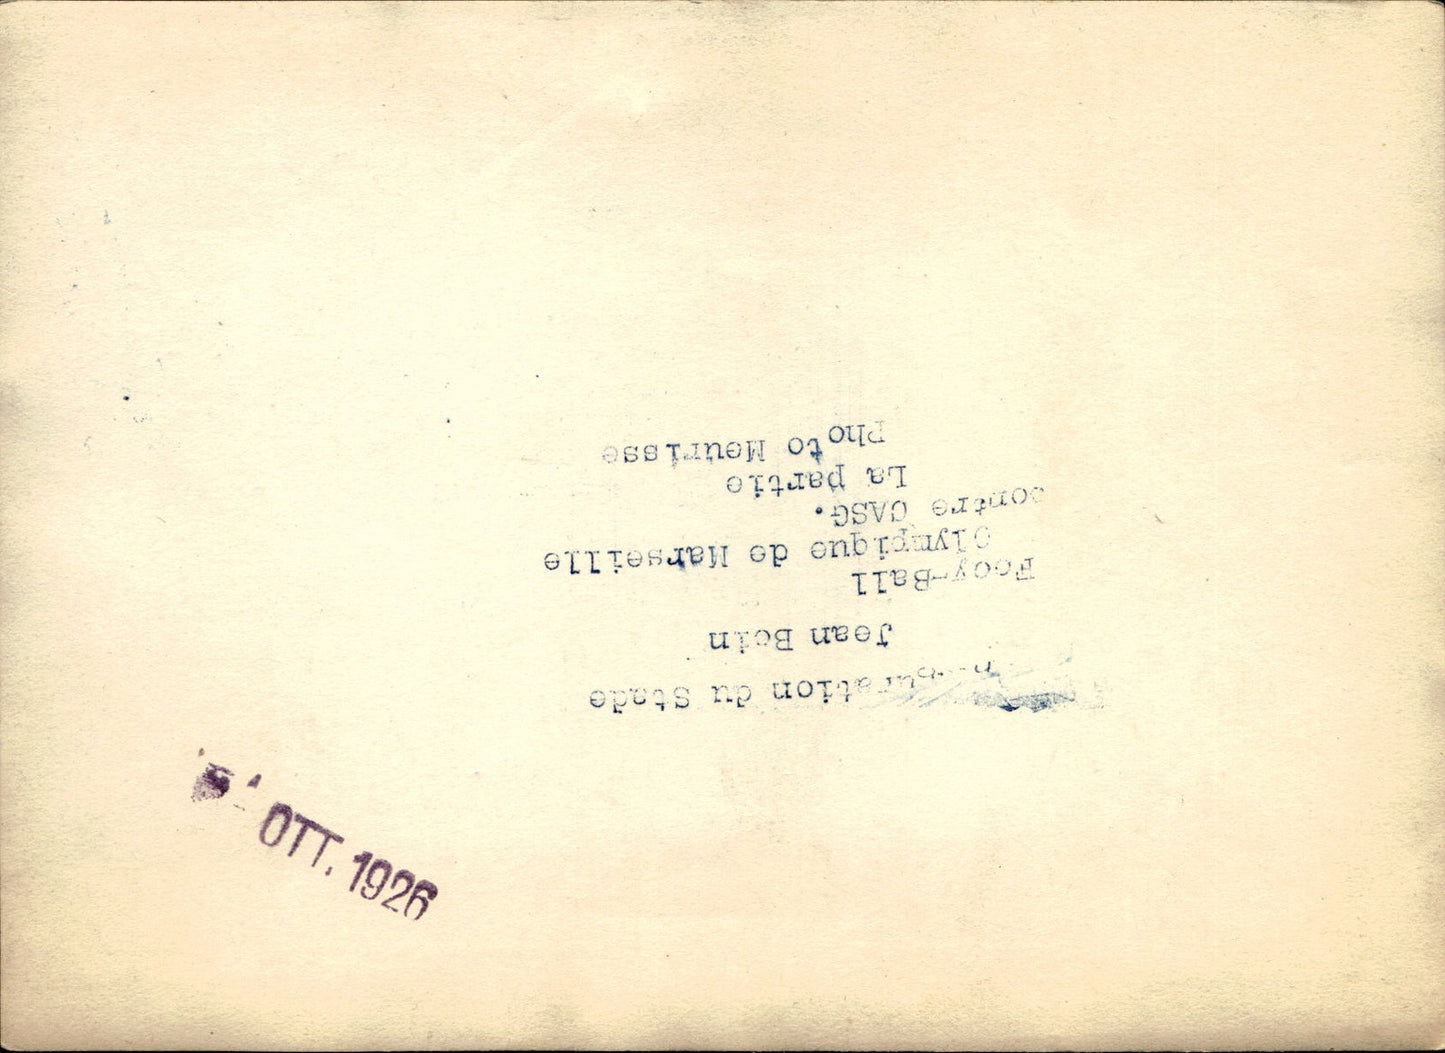 du Stade
Jean Boin
Fooy-Ball
Olympique de Marseille
contre CASG.
La partie
Photo Meurisse
OTT. 1926